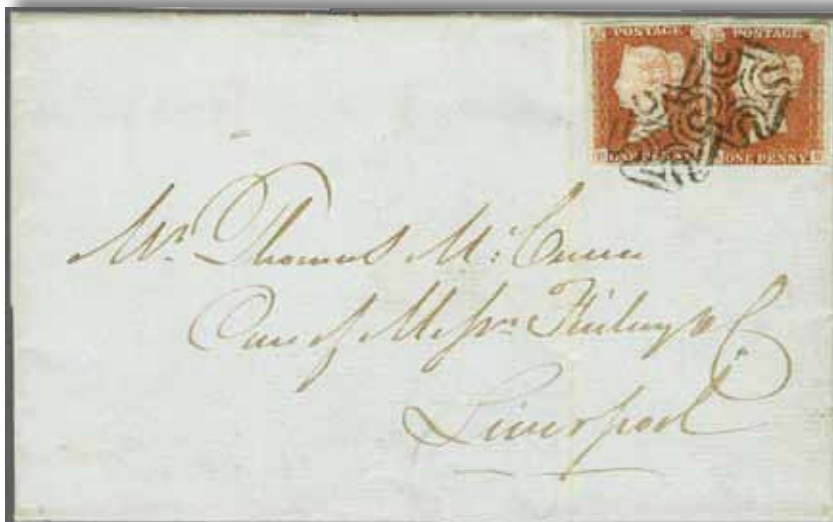 POSTAGE POSTAGE
ONE PENNY ONE PENNY
Mr. Thomas
Care of Messrs Finlay & Co
Liverpool